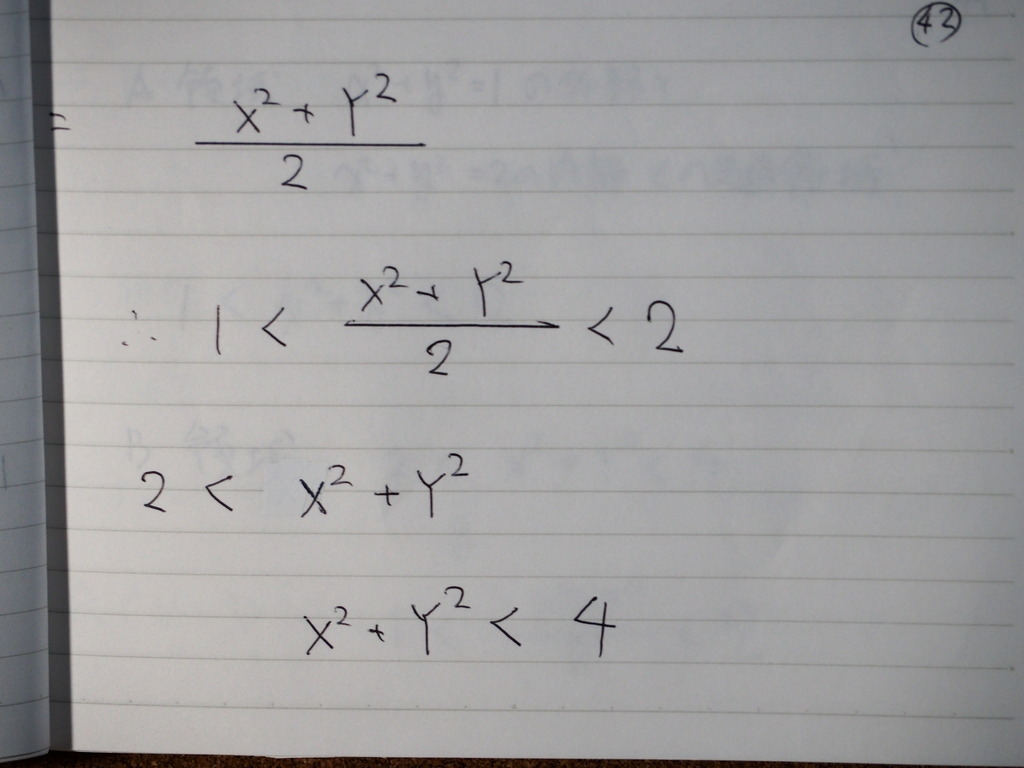 43
= X² + Y² / 2
∴ 1 < X² + Y² / 2 < 2
2 < X² + Y²
X² + Y² < 4